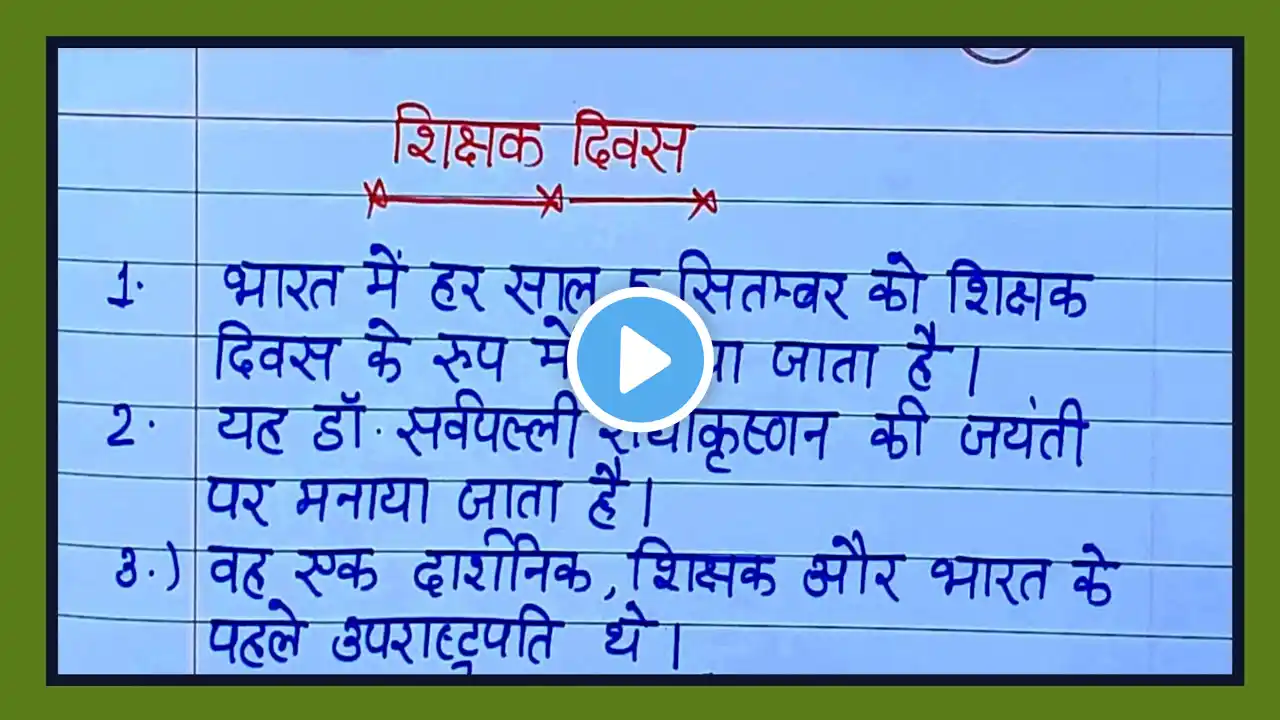 शिक्षक दिवस
1. भारत में हर साल 5 सितम्बर को शिक्षक
दिवस के रुप में जाता है।
2. यह डॉ. सर्वपल्ली राधाकृष्णन की जयंती
पर मनाया जाता है।
3.) वह एक दार्शनिक, शिक्षक और भारत के
पहले उपराष्ट्रपति थे।